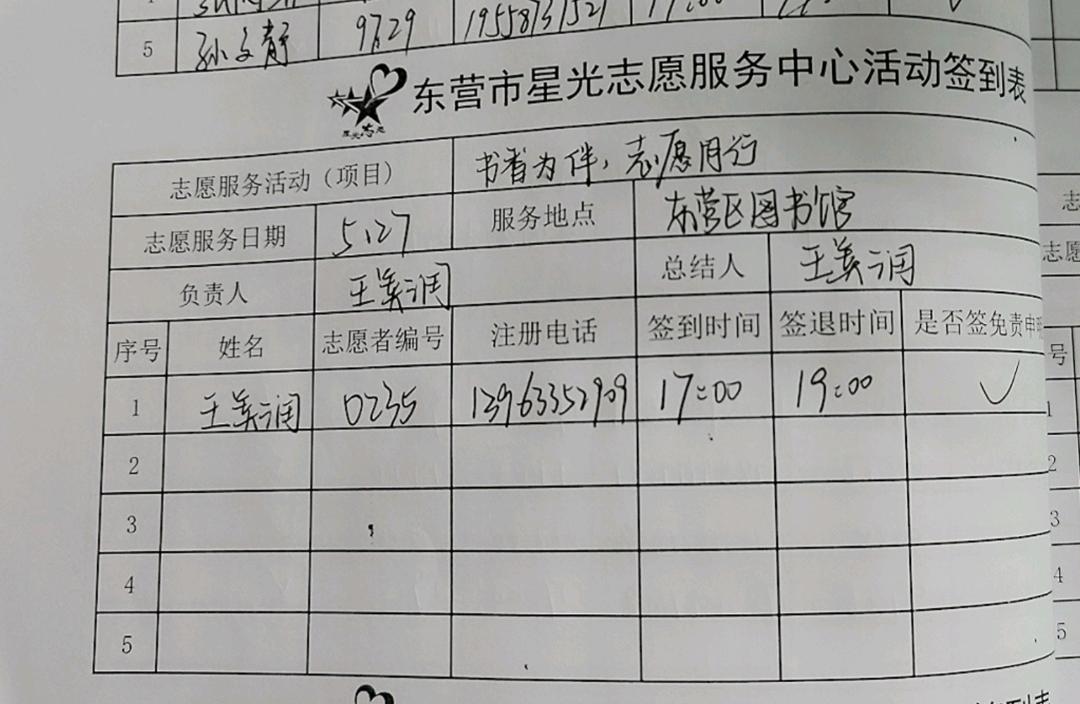 5 孙文静 9729 19558731521 17:00
东营市星光志愿服务中心活动签到表
志愿服务活动（项目） 书香为伴，志愿同行
志愿服务日期 5.27 服务地点 东营区图书馆
负责人 王美润 总结人 王美润
序号 姓名 志愿者编号 注册电话 签到时间 签退时间 是否签免责申
1 王美润 0235 13963352909 17:00 19:00 ✓
2
3
4
5